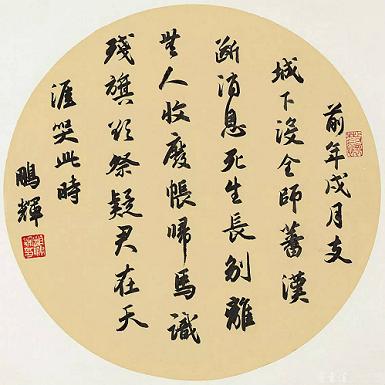 前年戍月支
城下沒全師蕃漢
斷消息死生長別離
無人收廢帳歸馬識
殘旗欲祭疑君在天
涯哭此時
鵬輝